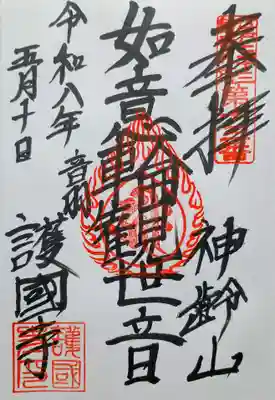 奉拝
神齢山
如意輪觀世音
音羽
護國寺
令和八年
五月十日
護國